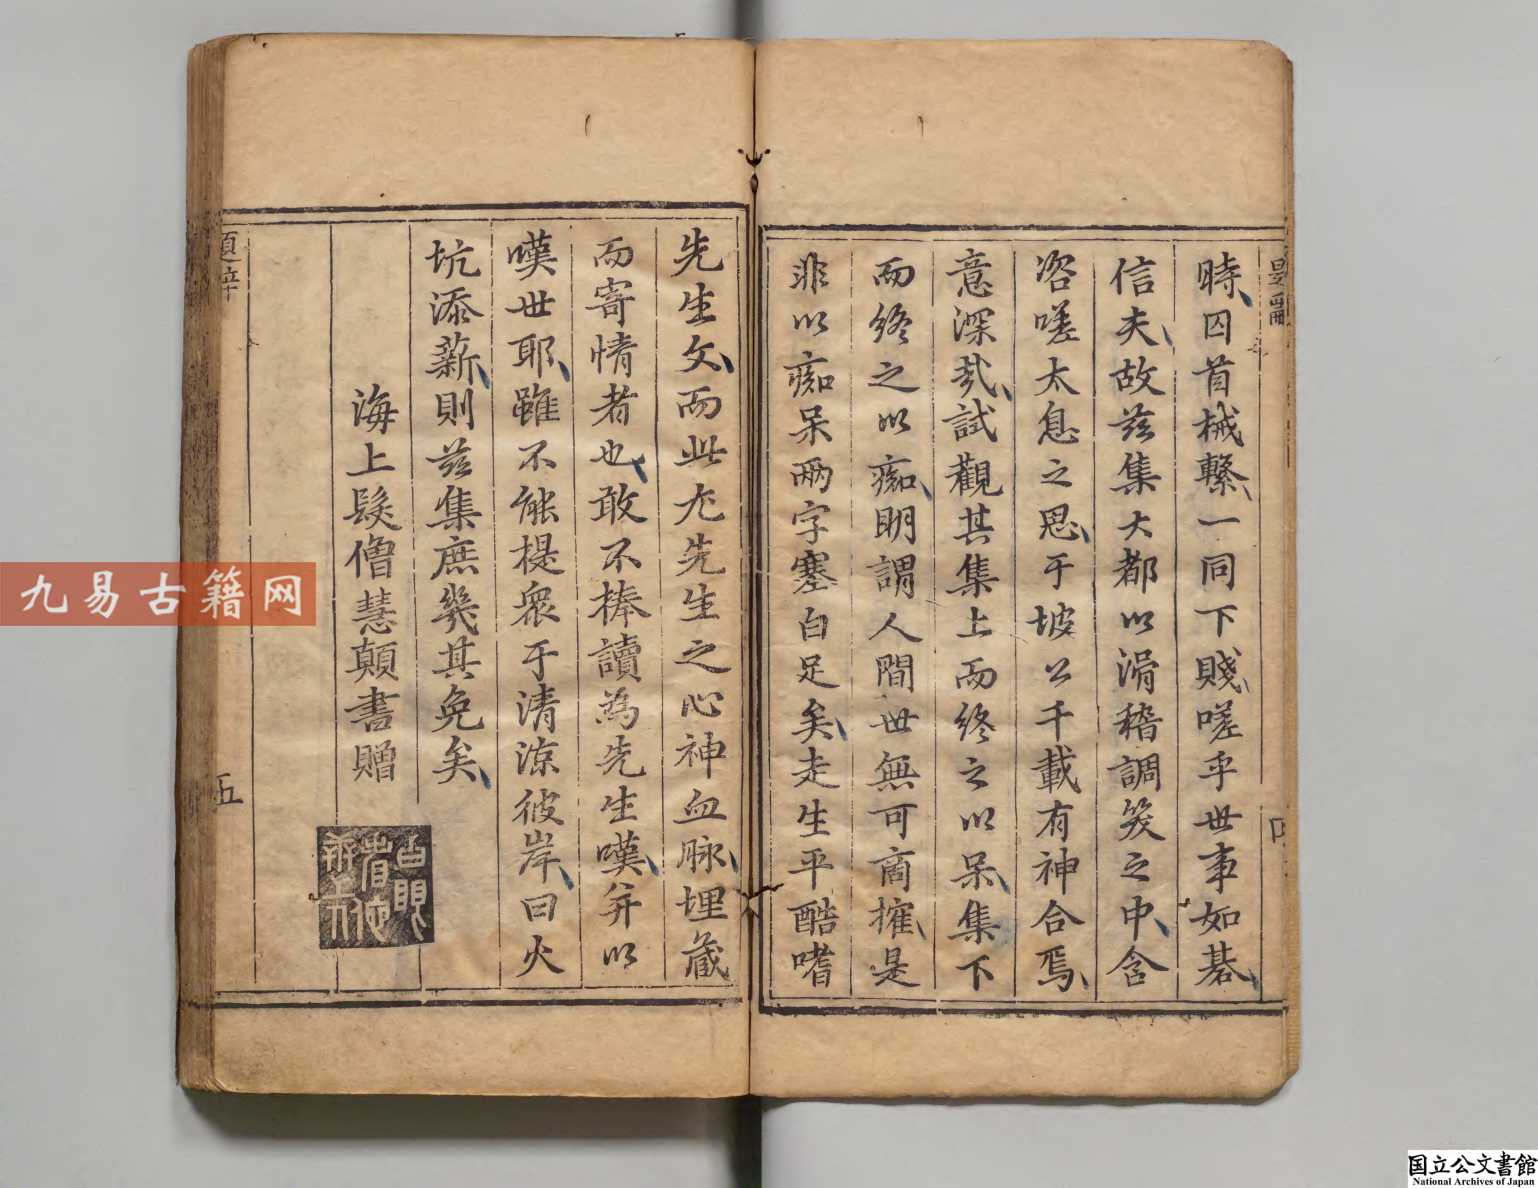 時囚首械繫一同下賤嗟乎世事如碁
信夫故茲集大都以滑稽調笑之中含
咨嗟太息之思于坡公千載有神合焉
意深哉試觀其集上而終之以呆集下
而終之以痴明謂人間世無可商搉是
非以痴呆兩字塞白足矣走生平酷嗜
先生文而此尤先生之心神血脉埋藏
而寄情者也敢不捧讀為先生嘆并以
嘆世耶雖不能提衆于清涼彼岸曰火
坑添薪則茲集庶幾其免矣
海上髮僧慧顛書贈
題辞
五
九易古籍网
国立公文書館
National Archives of Japan